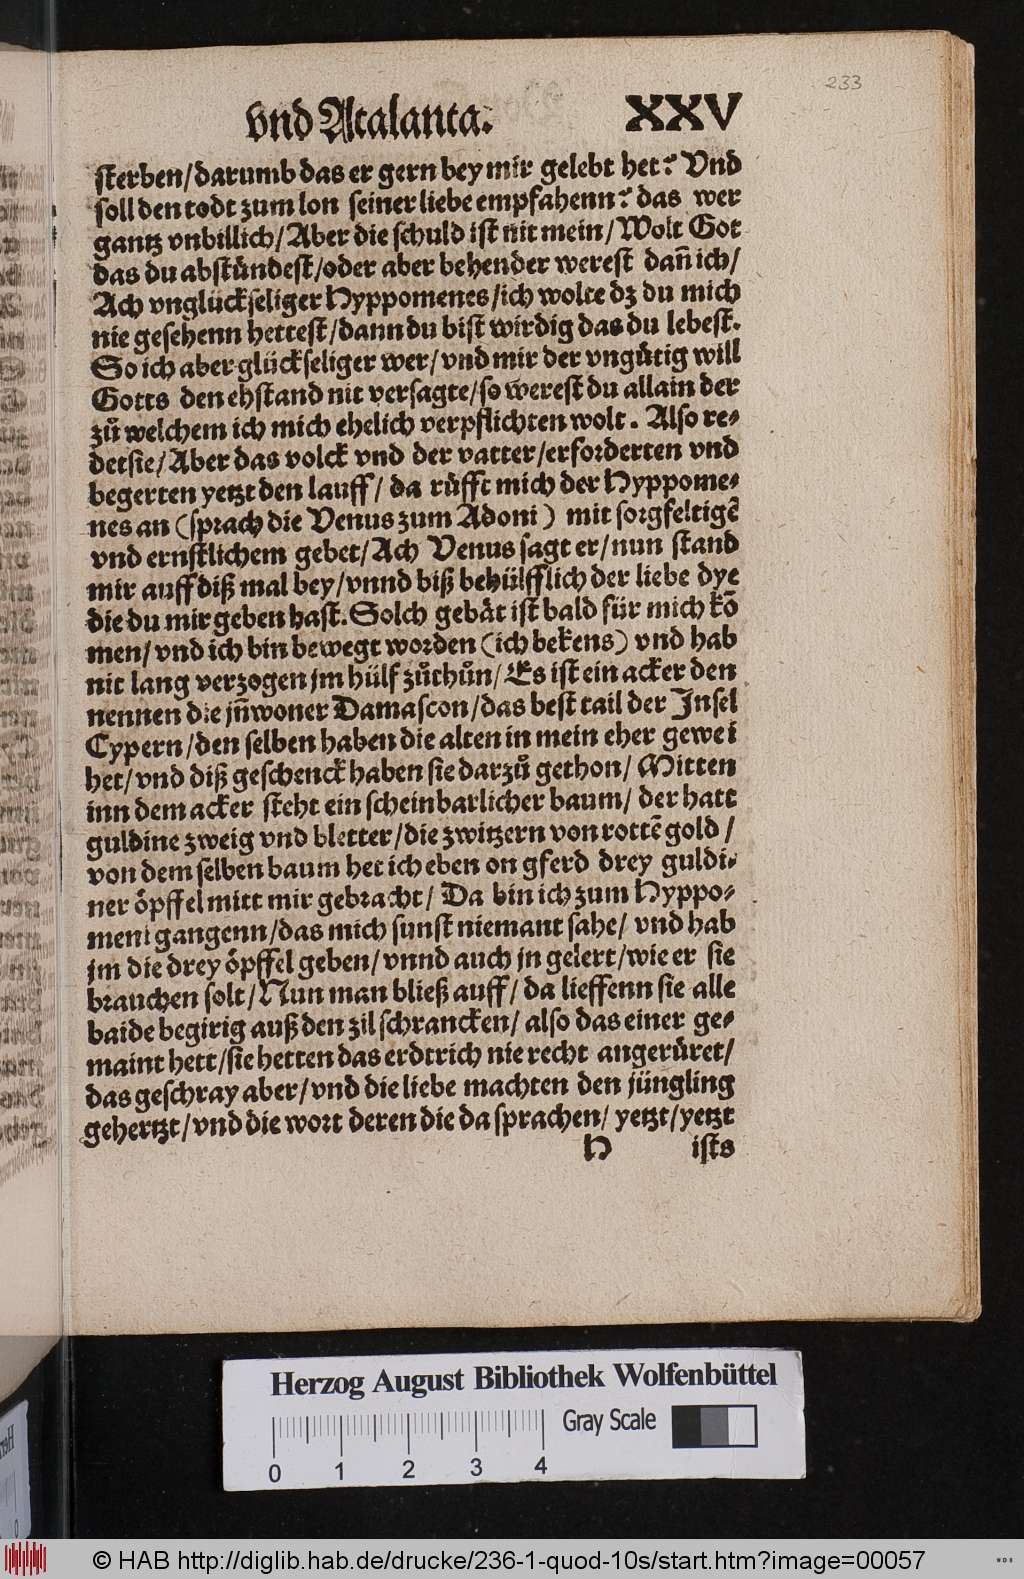 233
vnd Atalanta. XXV
sterben/darumb das er gern bey mir gelebt het? Vnd
soll den todt zum lon seiner liebe empfahenn? das wer
gantz vnbillich/Aber die schuld ist nit mein/Wolt Got
das du abstůndest/oder aber behender werest dañ ich/
Ach vnglückseliger Hyppomenes/ich wolte dz du mich
nie gesehenn hettest/dann du bist wirdig das du lebest.
So ich aber glückseliger wer/vnd mir der vngůtig will
Gotts den ehstand nit versagte/so werest du allain der
zů welchem ich mich ehelich verpflichten wolt. Also re-
det sie/Aber das volck vnd der vatter/erforderten vnd
begerten yetzt den lauff/da růfft mich der Hyppome-
nes an (sprach die Venus zum Adoni) mit sorgfeltigẽ
vnd ernstlichem gebet/Ach Venus sagt er/nun stand
mir auff diß mal bey/vnnd biß behülfflich der liebe dye
die du mir geben hast. Solch gebåt ist bald für mich kõ
men/vnd ich bin bewegt worden (ich bekens) vnd hab
nit lang verzogen jm hülf zůthůn/Es ist ein acker den
nennen die jñwoner Damascon/das best tail der Insel
Cypern/den selben haben die alten in mein eher gewei
het/vnd diß geschenck haben sie darzů gethon/Mitten
inn dem acker steht ein scheinbarlicher baum/der hatt
guldine zweig vnd bletter/die zwitzern von rottẽ gold/
von dem selben baum het ich eben on gferd drey guldi-
ner öpffel mitt mir gebracht/Da bin ich zum Hyppo-
meni gangenn/das mich sunst niemant sahe/vnd hab
jm die drey öpffel geben/vnnd auch jn gelert/wie er sie
brauchen solt/Nun man bließ auff/da lieffenn sie alle
baide begirig auß den zil schrancken/also das einer ge-
maint hett/sie hetten das erdtrich nie recht angerůret/
das geschray aber/vnd die liebe machten den jüngling
gehertzt/vnd die wort deren die da sprachen/yetzt/yetzt
H ists
Herzog August Bibliothek Wolfenbüttel
Gray Scale
0 1 2 3 4
© HAB http://diglib.hab.de/drucke/236-1-quod-10s/start.htm?image=00057